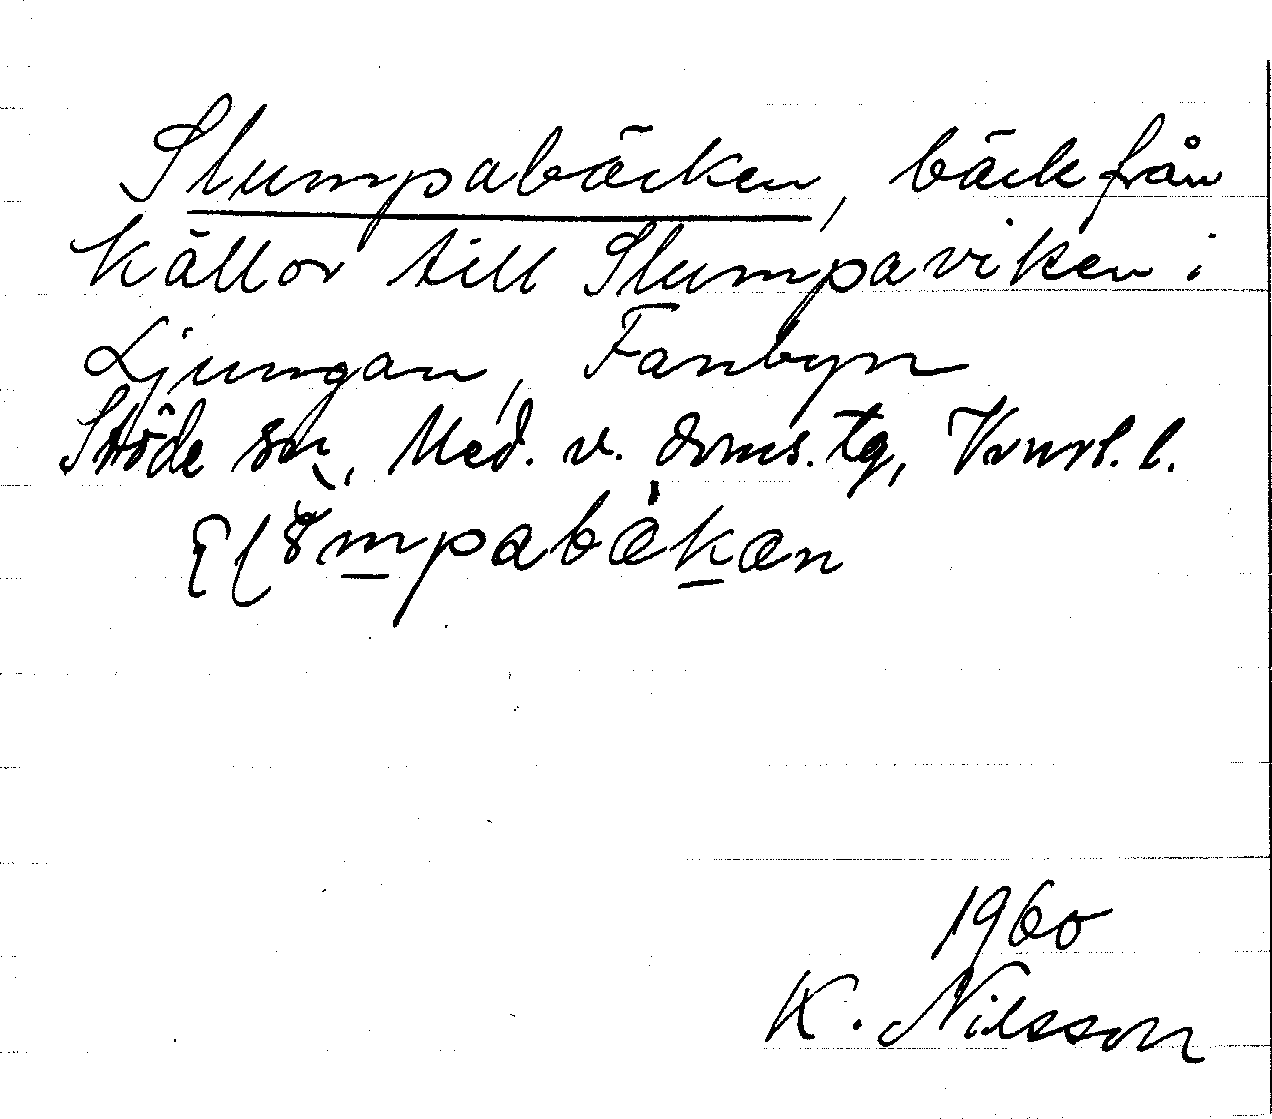 Slumpabäcken, bäck från
källor till Slumpaviken i
Ljungan, Fanbyn
Stöde sn, Med. v. doms. tg, Vnrl. l.
1960
K. Nilsson